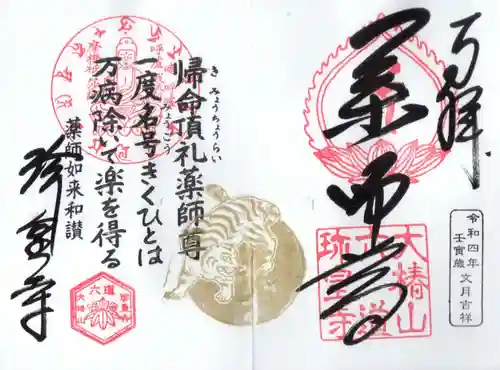 奉拝
薬師尊
令和四年
壬寅歳
文月吉祥
大椿山
六道
珍皇寺
帰命頂礼薬師尊
き みょうちょうらい
一度名号きくひとは
みょうごう
万病除いて楽を得る
薬師如来和讃
珍皇寺
六道
大椿山